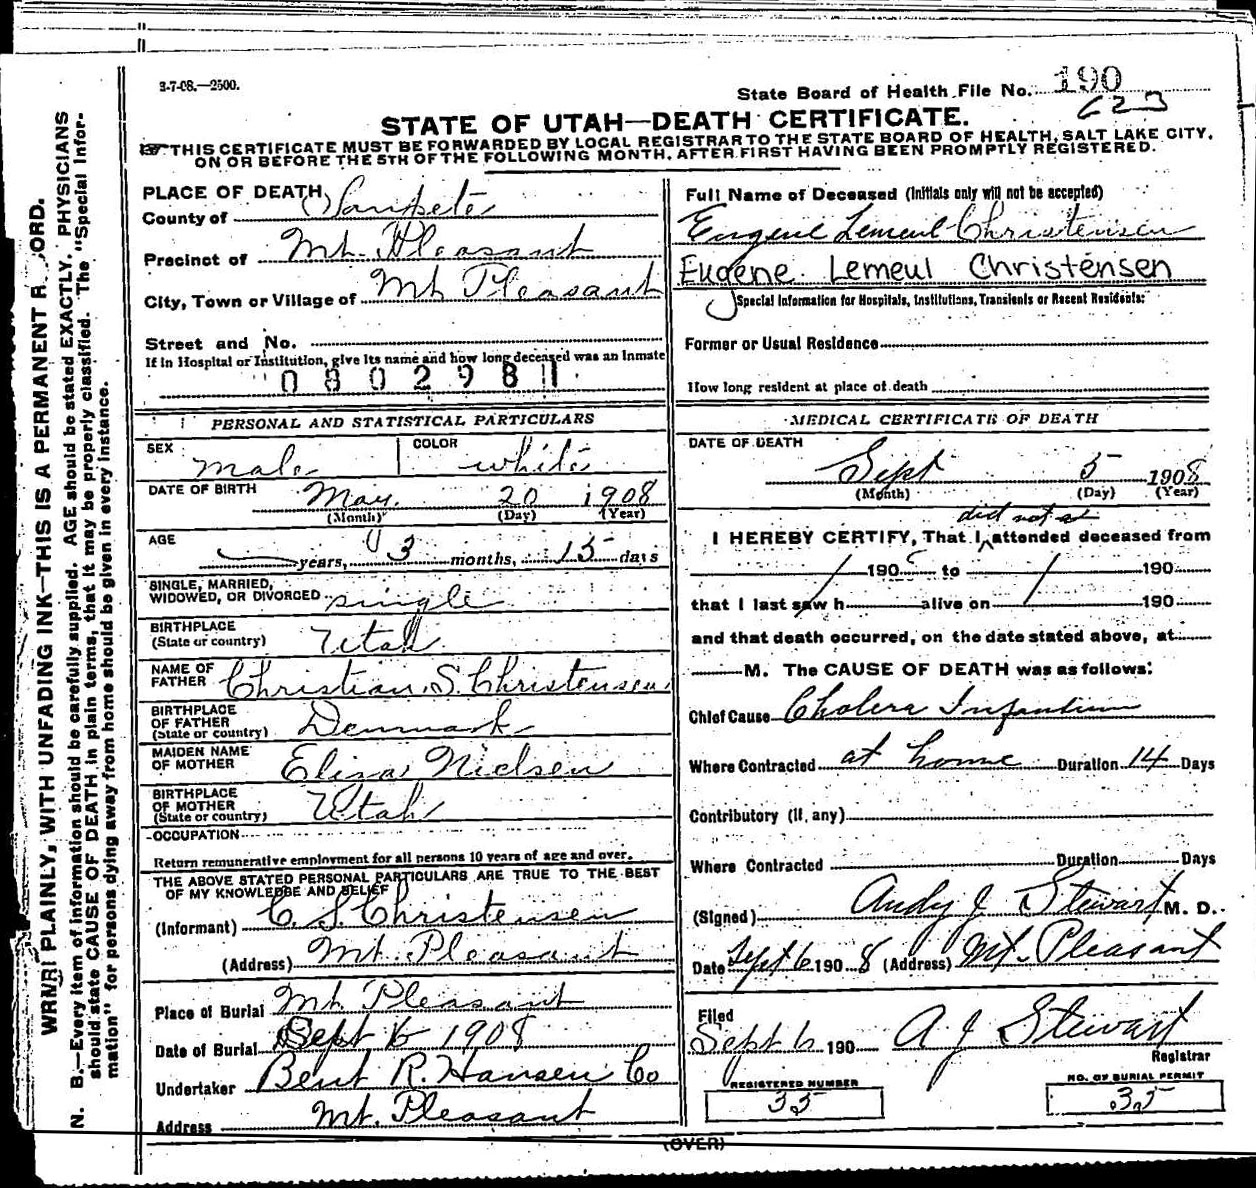 3-7-08.—2500.
State Board of Health File No. 190
623
STATE OF UTAH—DEATH CERTIFICATE.
THIS CERTIFICATE MUST BE FORWARDED BY LOCAL REGISTRAR TO THE STATE BOARD OF HEALTH, SALT LAKE CITY,
ON OR BEFORE THE 5TH OF THE FOLLOWING MONTH, AFTER FIRST HAVING BEEN PROMPTLY REGISTERED.
PLACE OF DEATH
County of Sanpete
Precinct of Mt. Pleasant
City, Town or Village of Mt Pleasant
Street and No.
If in Hospital or Institution, give its name and how long deceased was an Inmate
PERSONAL AND STATISTICAL PARTICULARS
SEX male COLOR white
DATE OF BIRTH May 20 1908
(Month) (Day) (Year)
AGE years, 3 months, 15 days
SINGLE, MARRIED,
WIDOWED, OR DIVORCED single
BIRTHPLACE
(State or country) Utah
NAME OF
FATHER Christian S. Christensen
BIRTHPLACE
OF FATHER
(State or country) Denmark
MAIDEN NAME
OF MOTHER Eliza Nielsen
BIRTHPLACE
OF MOTHER
(State or country) Utah
OCCUPATION
Return remunerative employment for all persons 10 years of age and over.
THE ABOVE STATED PERSONAL PARTICULARS ARE TRUE TO THE BEST
OF MY KNOWLEDGE AND BELIEF
(Informant) C. S. Christensen
(Address) Mt. Pleasant
Place of Burial Mt Pleasant
Date of Burial Sept 6 1908
Undertaker Bent R. Hansen Co
Address Mt. Pleasant
Full Name of Deceased (Initials only will not be accepted)
Eugene Lemeul Christensen
Eugene Lemeul Christensen
Special Information for Hospitals, Institutions, Transients or Recent Residents:
Former or Usual Residence
How long resident at place of death
MEDICAL CERTIFICATE OF DEATH
DATE OF DEATH
Sept 5 1908
(Month) (Day) (Year)
did not
I HEREBY CERTIFY, That I attended deceased from
190 to 190
that I last saw h alive on 190
and that death occurred, on the date stated above, at
M. The CAUSE OF DEATH was as follows:
Chief Cause Cholera Infantum
Where Contracted at home Duration 14 Days
Contributory (if any)
Where Contracted Duration Days
(Signed) Andy J Stewart M. D.
Date Sept 6 190 8 (Address) Mt. Pleasant
Filed
Sept 6 190 A J Stewart
Registrar
REGISTERED NUMBER
35
NO. OF BURIAL PERMIT
35
(OVER)
PLAINLY, WITH UNFADING INK—THIS IS A PERMANENT
N. B.—Every item of information should be carefully supplied. AGE should be stated EXACTLY. PHYSICIANS
should state CAUSE OF DEATH in plain terms, that it may be properly classified. The "Special Infor-
mation" for persons dying away from home should be given in every instance.